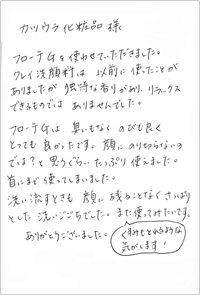 カツウラ化粧品 様
フローテGを使わせていただきました。
クレイ洗顔料は 以前に使ったことが
ありましたが 独特な香りがあり リラックス
できるものでは ありませんでした。
フローテGは 臭いもなく のびも良く
とても良かったです。顔にのり切らないの
では？と思うぐらい たっぷり使えました。
首にまで使ってしまいました。
洗い流すときも 顔に残ることなく さっぱり
とした洗いごこちでした。また使ってみたいです。
ありがとうございました。
くすみもとれるような
気がします！